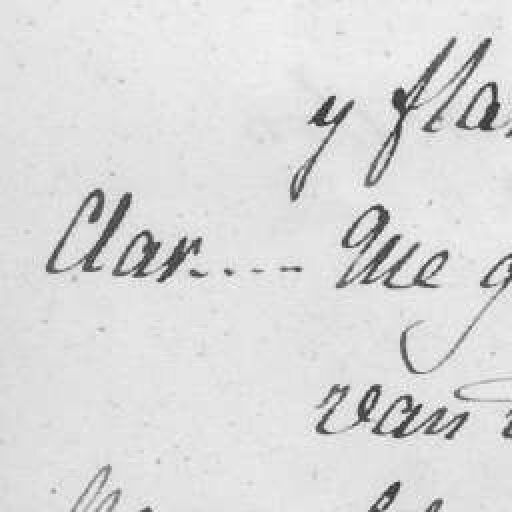 y fla
Clar.---- Que g
van